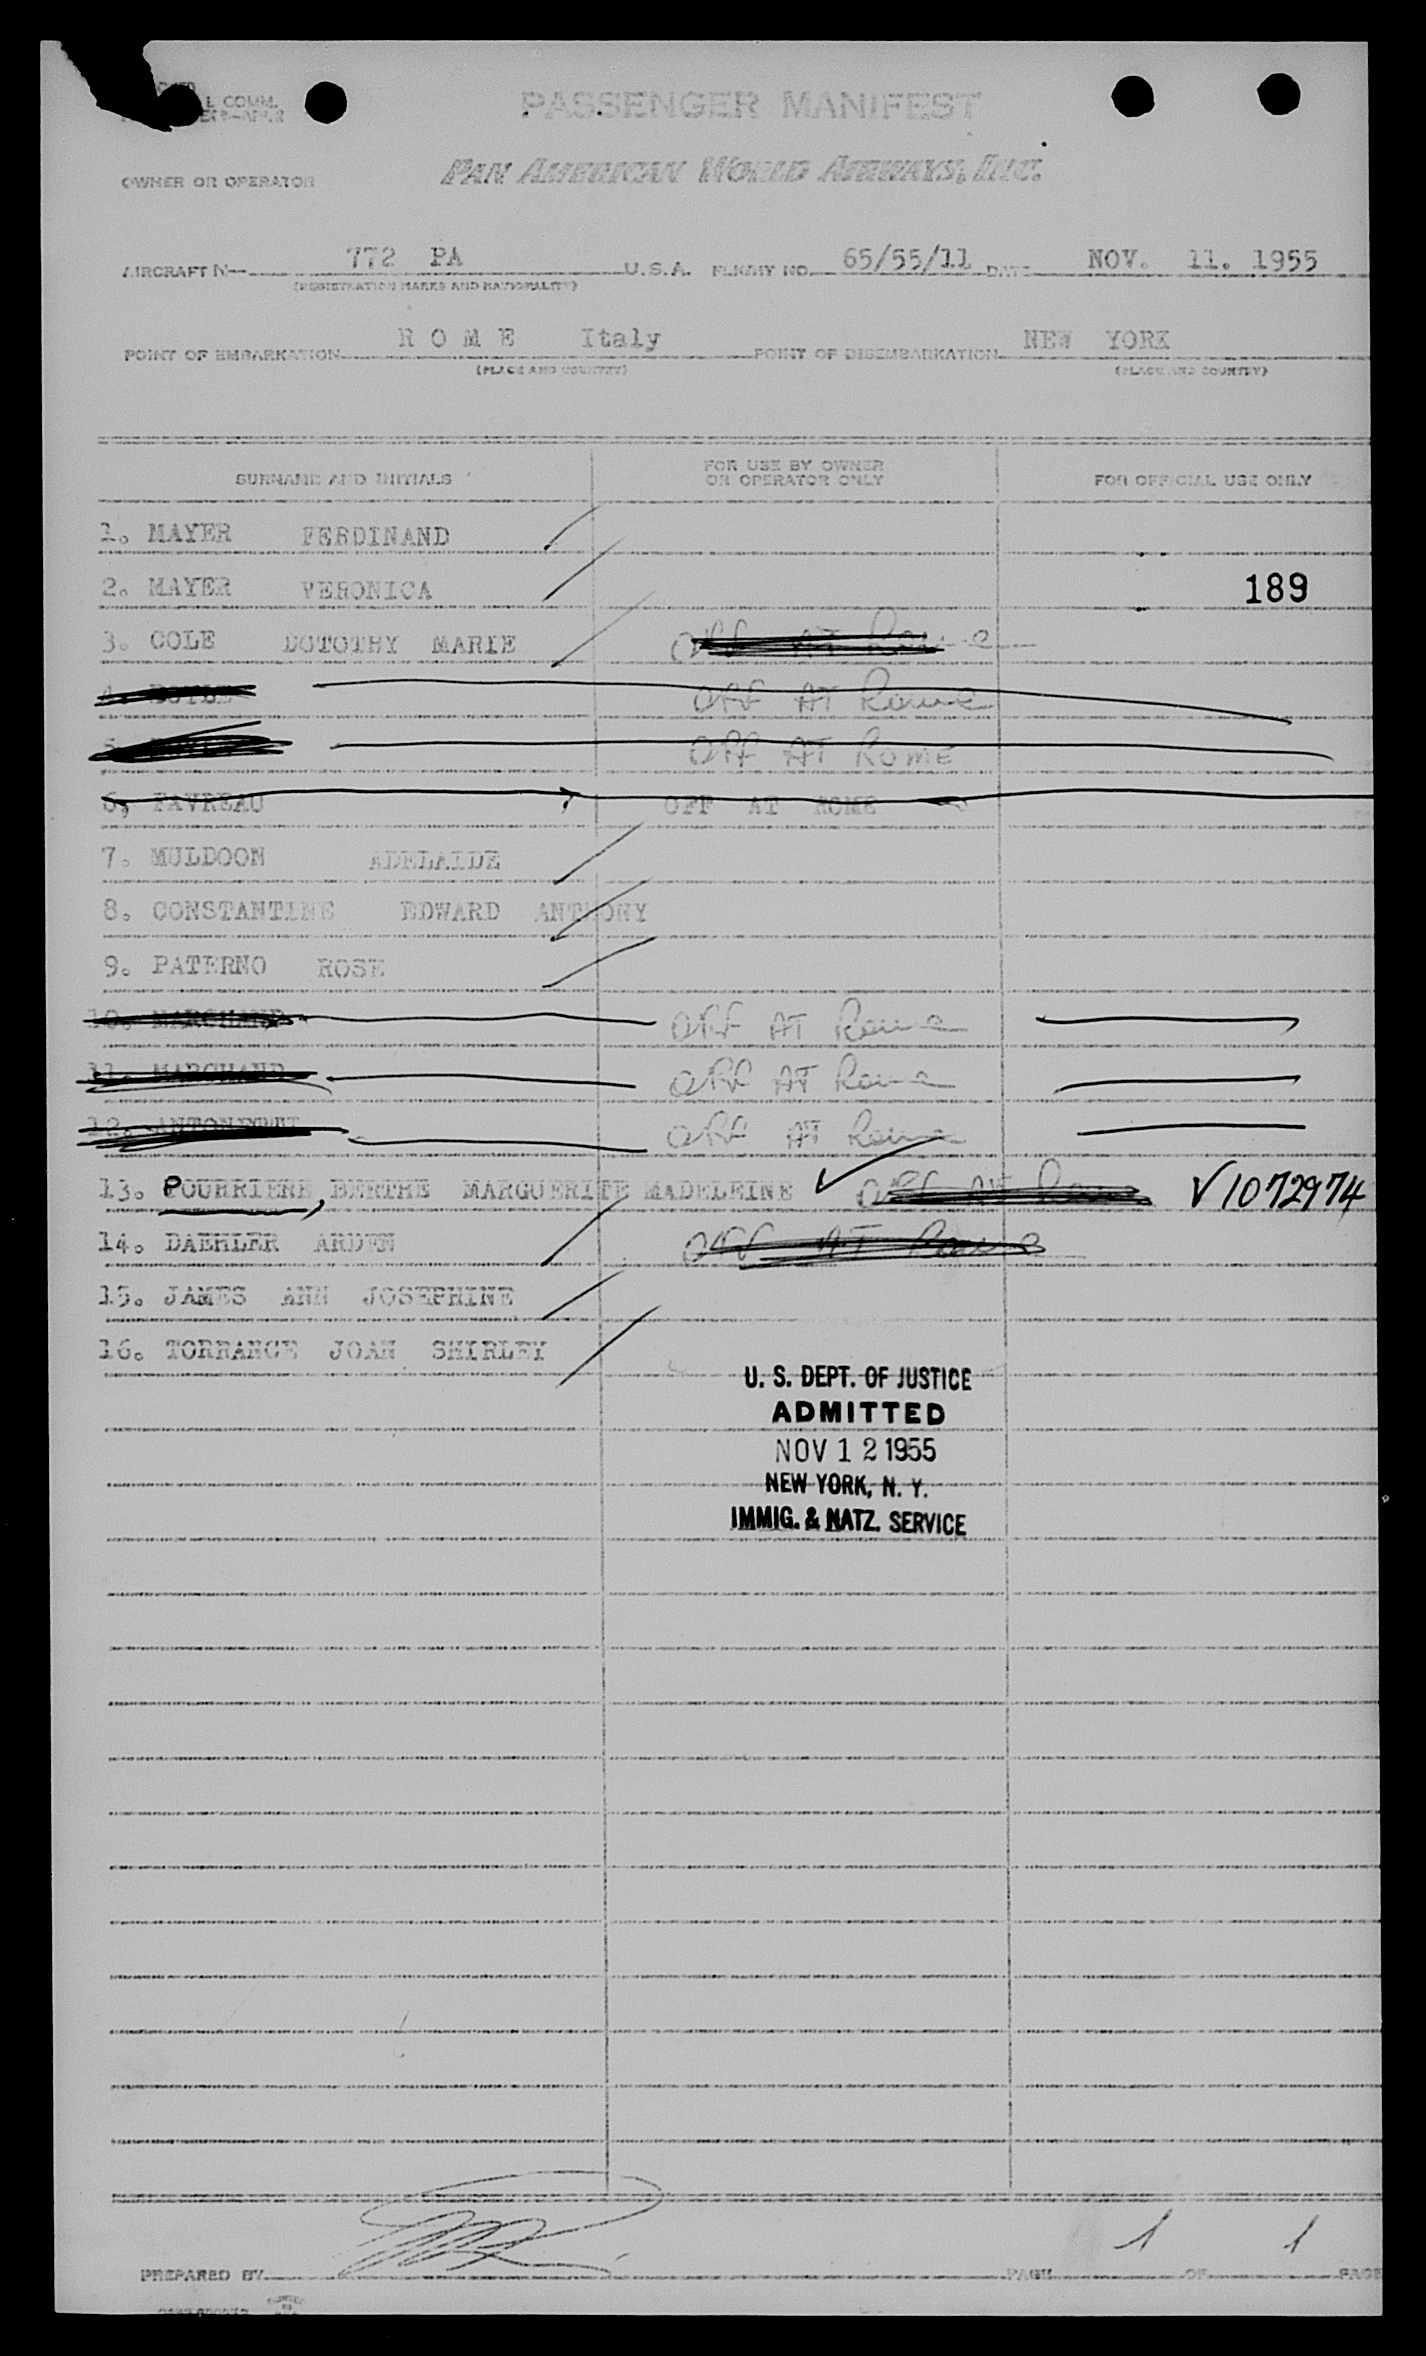 L COMM.
PASSENGER MANIFEST
OWNER OR OPERATOR PAN AMERICAN WORLD AIRWAYS, INC.
AIRCRAFT N— 772 PA U.S.A. FLIGHT NO. 65/55/11 DATE NOV. 11. 1955
(REGISTRATION MARKS AND NATIONALITY)
POINT OF EMBARKATION R O M E Italy POINT OF DISEMBARKATION NEW YORK
(PLACE AND COUNTRY) (PLACE AND COUNTRY)
SURNAME AND INITIALS FOR USE BY OWNER OR OPERATOR ONLY FOR OFFICIAL USE ONLY
1. MAYER FERDINAND
2. MAYER VERONICA 189
3. COLE DOTOTHY MARIE Off AT Rome
4. Off AT Rome
5. Off AT ROME
6, FAVREAU OFF AT ROME
7. MULDOON ADELAIDE
8. CONSTANTINE EDWARD ANTHONY
9. PATERNO ROSE
10. MARCHAND Off AT Rome
11. MARCHAND Off AT Rome
12. Off AT Rome
13. POURRIERE, BERTHE MARGUERITE MADELEINE Off AT Rome V1072974
14. DAEHLER ARDEN Off AT Rome
15. JAMES ANN JOSEPHINE
16. TORRANCE JOAN SHIRLEY
U. S. DEPT. OF JUSTICE
ADMITTED
NOV 12 1955
NEW YORK, N. Y.
IMMIG. & NATZ. SERVICE
PREPARED BY PAGE 1 OF 1 PAGE